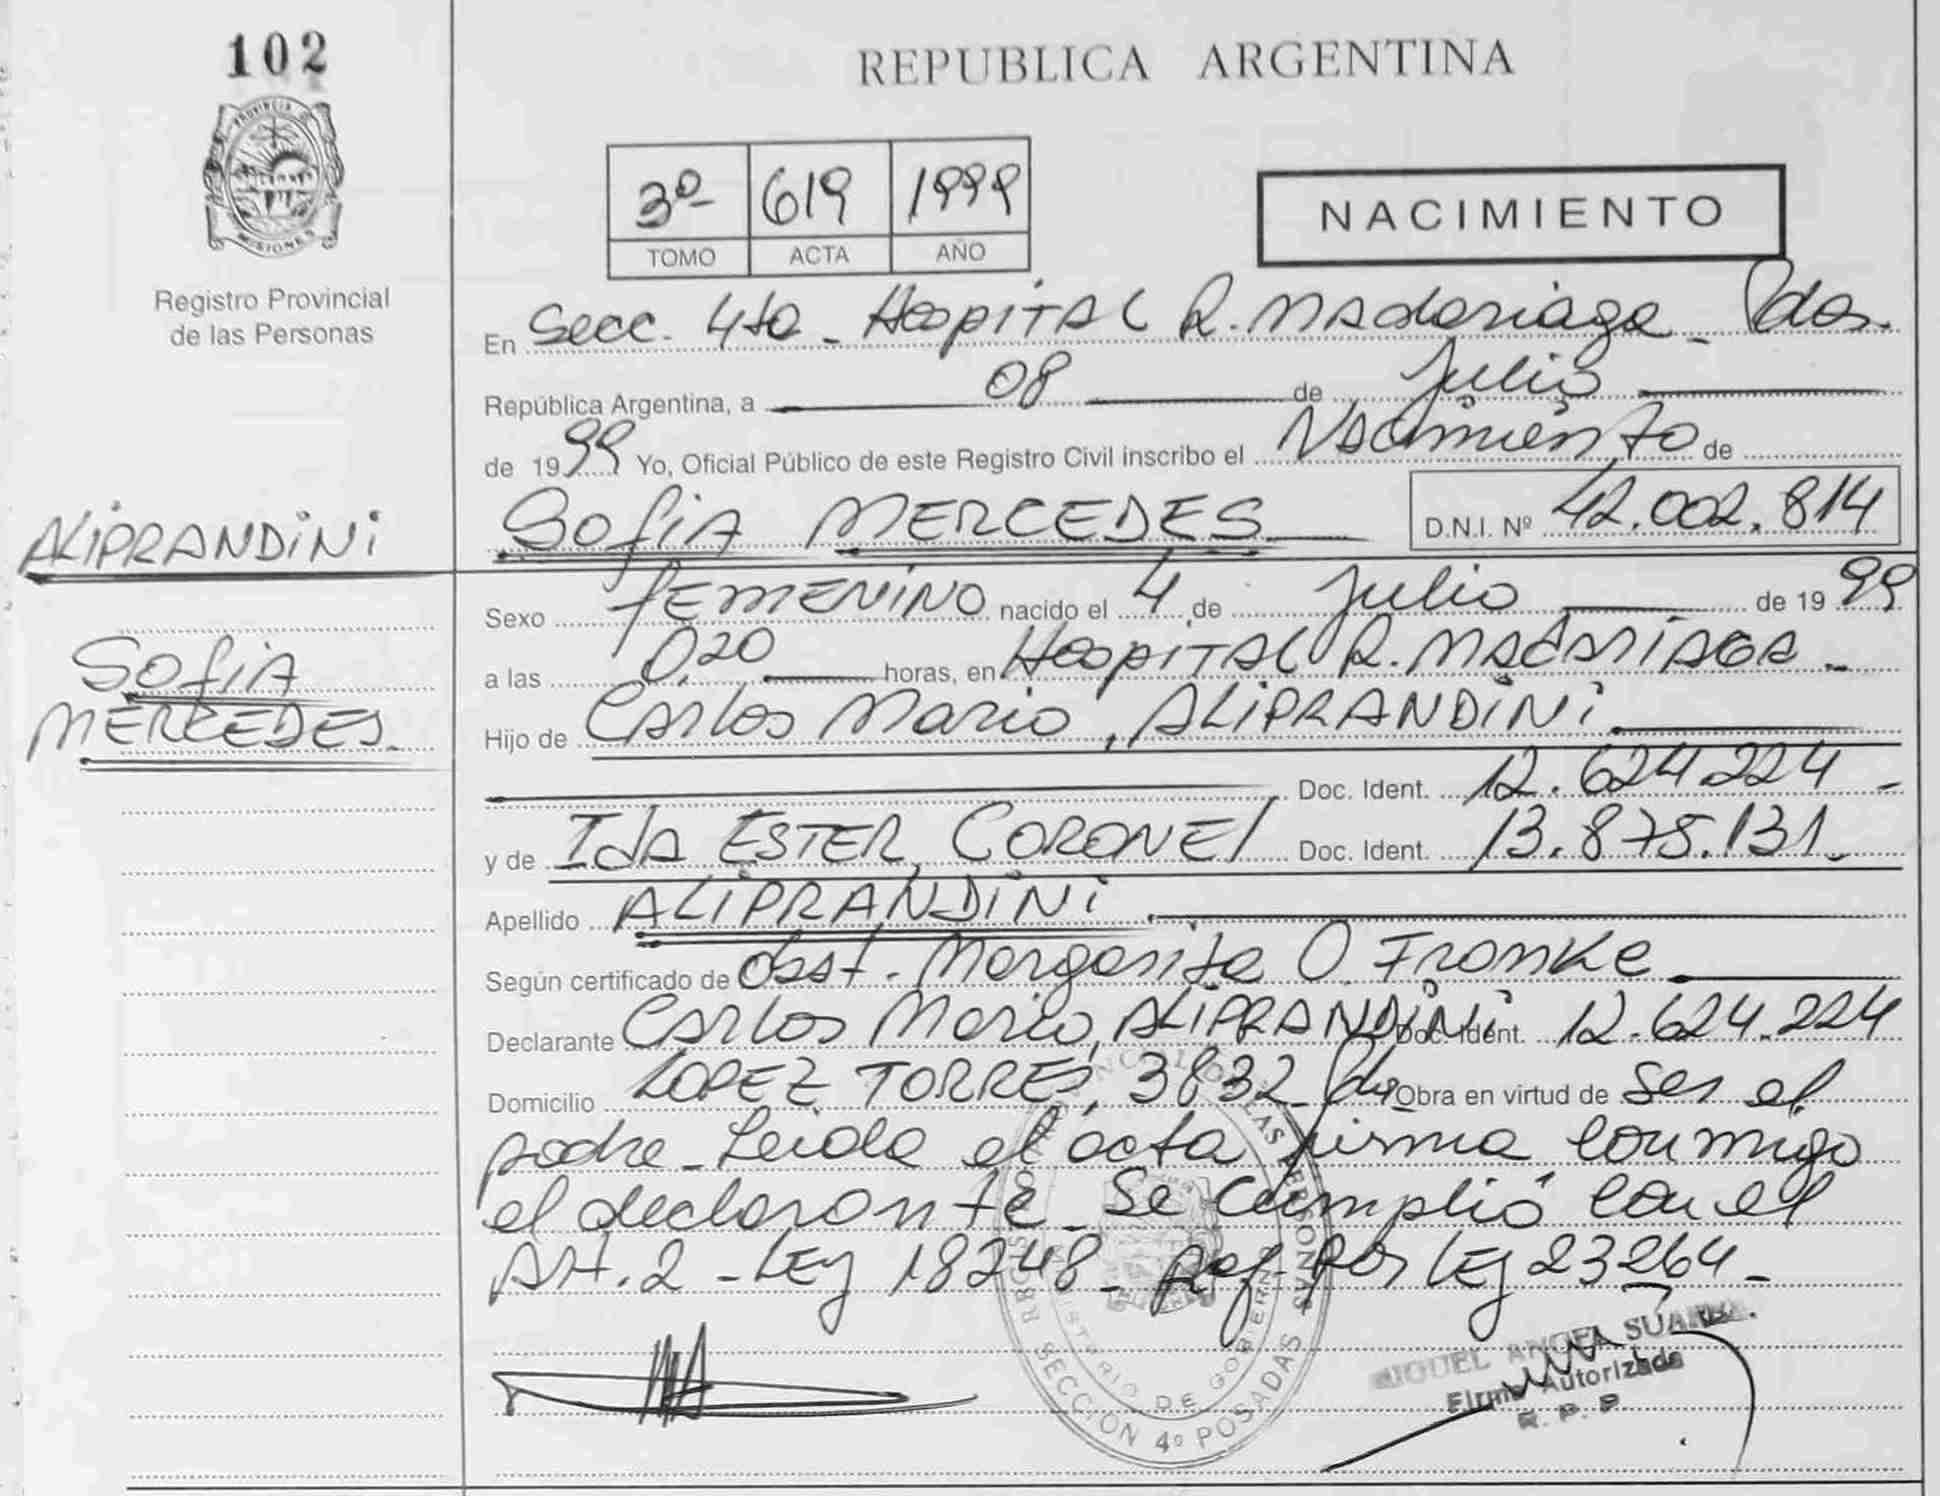 102
PROVINCIA DE
MISIONES
Registro Provincial
de las Personas
REPUBLICA ARGENTINA
3º 619 1999
TOMO ACTA AÑO
NACIMIENTO
En Secc. 4ta - Hospital R. Madariaga - Pdas.
República Argentina, a 08 de Julio
de 1999 Yo, Oficial Público de este Registro Civil inscribo el Nacimiento de
ALIPRANDINI
SOFIA MERCEDES D.N.I. Nº 42.002.814
Sexo FEMENINO nacido el 4 de Julio de 1999
SOFIA
MERCEDES.
a las 0,20 horas, en Hospital R. MADARIAGA -
Hijo de Carlos Mario, ALIPRANDINI
Doc. Ident. 12.624.224 -
y de Ida ESTER, CORONEL Doc. Ident. 13.875.131.-
Apellido ALIPRANDINI
Según certificado de Obst. Margarita O. Franke
Declarante Carlos Mario, ALIPRANDINI Doc. Ident. 12.624.224
Domicilio LOPEZ TORRES, 3832 - Pdas Obra en virtud de Ser el
padre - Leida el acta firma conmigo
el declarante - Se cumplió con el
Art. 2 - LEy 18248 - Ref. por LEy 23264 -
MIGUEL ANGEL SUAREZ
Firma Autorizada
R. P. P
LAS PERSONAS
MINISTERIO DE GOBIERNO
SECCION 4º POSADAS